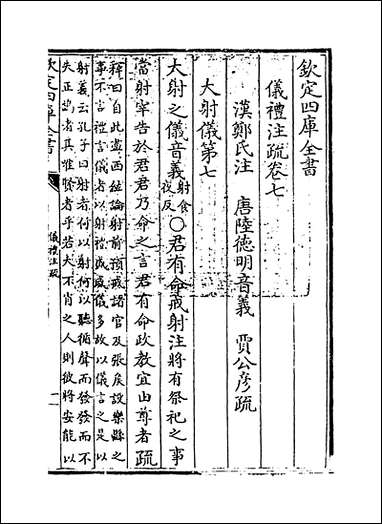 欽定四庫全書
儀禮注疏卷七
漢鄭氏注 唐陸徳明音義 賈公彦疏
大射儀第七
大射之儀音義射食夜反○君有命戒射注將有祭祀之事
當射宰告於君君乃命之言君有命政教宜由尊者疏
釋曰自此盡西紘論射前預戒諸官及張侯設樂縣之
事不言禮言儀者以射禮盛威儀多故以儀言之是以
射義云孔子曰射者何以射何以聽循聲而發發而不
失正鵠者其惟賢者乎若夫不肖之人則彼將安能以
欽定四庫全書
儀禮注疏